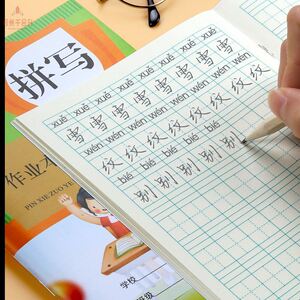 拼写
作业本
PIN XIE ZUO YE
学校
级
xuě xuě xuě xuě xuě xuě xuě
雪 雪 雪 雪 雪 雪 雪
wén wén wén wén wén wén wén
纹 纹 纹 纹 纹 纹
bié bié bié bié
别 别 别 别 别